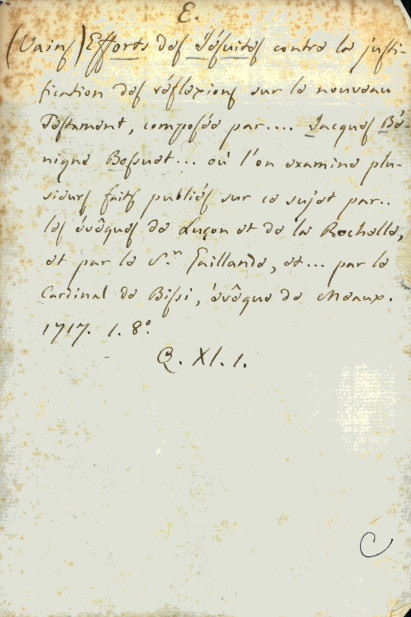 E.
(Vains) Efforts des Jésuites contre la justi-
fication des réflexions sur le nouveau
Testament, composée par.... Jacques Bé-
nigne Bossuet... où l'on examine plu-
sieurs faits publiés sur ce sujet par..
les évêques de Luçon et de la Rochelle,
et par le Sr. Gaillande, et... par le
Cardinal de Bissi, évêque de Meaux.
1717. 1. 8°.
Q. XI. 1.
C